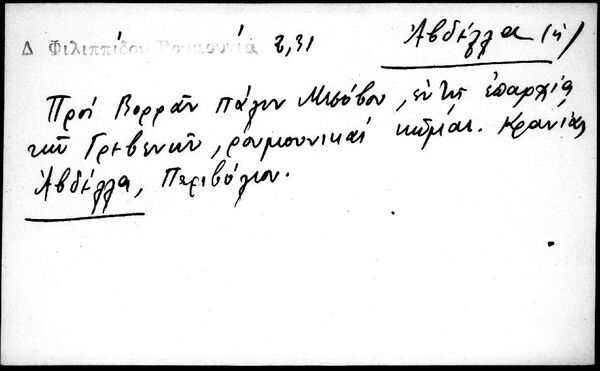 Δ Φιλιππίδου Ρουμουνία 2,31 Ἀβδέλλα (ἡ)
Πρὸς Βορρᾶν πάλιν Μετσόβου, ἐν τῇ ἐπαρχίᾳ
τῶν Γρεβενῶν, ρουμουνικαὶ κῶμαι. Κρανιά,
Ἀβδέλλα, Περιβόλιον.